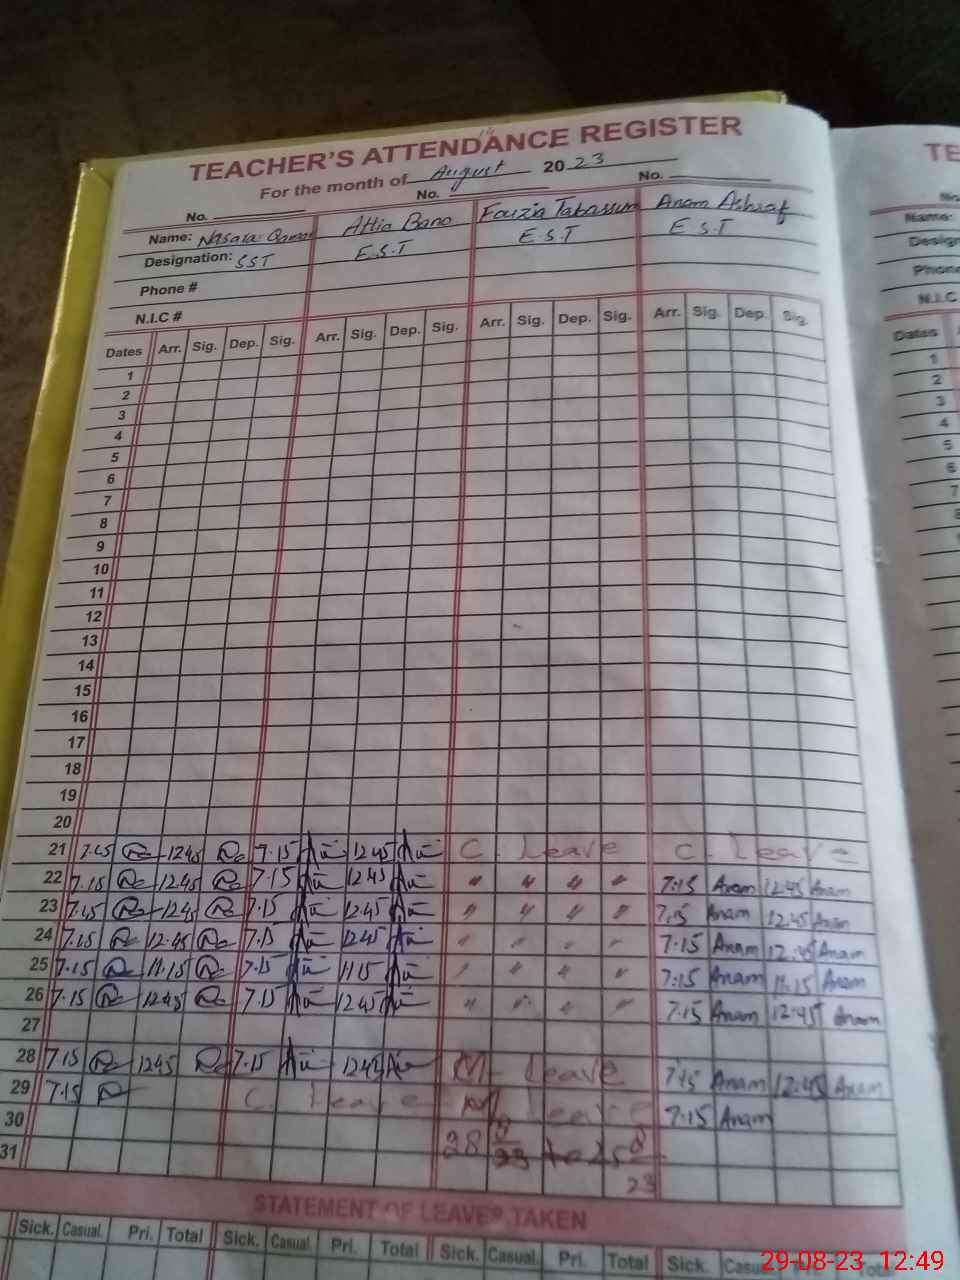 TEACHER'S ATTENDANCE REGISTER
For the month of August 20 23
No. No. No.
Name: Attia Bano Fouzia Tabassum Anam Ashraf
Designation: SST E.S.T E.S.T E S.T
Phone #
N.I.C #
Dates Arr. Sig. Dep. Sig. Arr. Sig. Dep. Sig. Arr. Sig. Dep. Sig. Arr. Sig. Dep. Sig.
1
2
3
4
5
6
7
8
9
10
11
12
13
14
15
16
17
18
19
20
21 7.15 12.45 7.15 12.45 C. Leave C. Leave
22 7.15 12.45 7.15 12.45 " " " " 7:15 Anam 12:45 Anam
23 7.15 12.45 7.15 12.45 " " " " 7:15 Anam 12:45 Anam
24 7.15 12.45 7.15 12.45 " " " " 7:15 Anam 12:45 Anam
25 7.15 11.15 7.15 11.15 " " " " 7:15 Anam 11.15 Anam
26 7.15 12.45 7.15 12.45 " " " " 7:15 Anam 12:45 Anam
27
28 7.15 12.45 7.15 12.45 M. Leave 7:15 Anam 12:45 Anam
29 7.15 C. Leave M Leave 7:15 Anam
30
31
STATEMENT OF LEAVES TAKEN
Sick. Casual. Pri. Total Sick. Casual. Pri. Total Sick. Casual. Pri. Total Sick.
TE
No.
Name:
Design
Phone
N.I.C
Dates
1
2
3
4
5
6
7
8
29-08-23 12:49